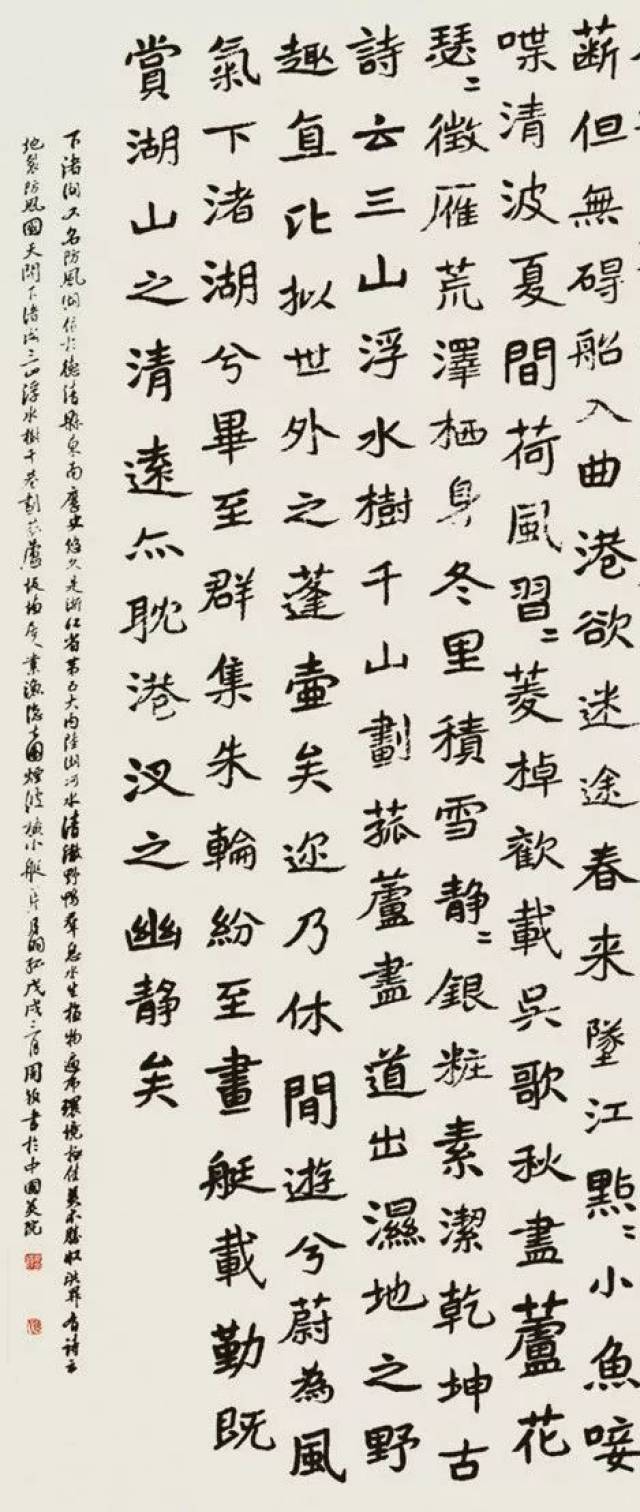 但無碍船入曲港欲迷途春来墜江點〻小魚唼
喋清波夏間荷風習〻菱棹歡載吳歌秋盡蘆花
瑟〻徵雁荒澤栖身冬里積雪静〻銀粧素潔乾坤古
詩云三山浮水樹千山劃菰蘆盡道出濕地之野
趣直比拟世外之蓬壷矣迩乃休閒遊兮蔚為風
氣下渚湖兮畢至群集朱輪紛至畫艇載勤既
賞湖山之清遠亦耽港汊之幽静矣
下渚湖又名防風湖位於德清縣東南歷史悠久是浙江省第五大内陸湖河水清澈野鴨群息水生植物遍布環境極佳美不勝收洪昇有詩云
地裂防風國天開下渚湖三山浮水樹千巷劃菰蘆人業漁隱士圖煙波橫小艇一片月明孤戊戌三月周書於中國美院